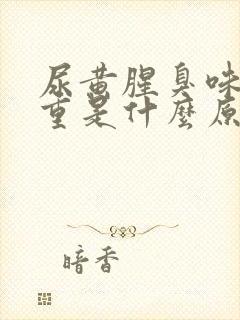 尿黄腥臭味
重是什麼原
暗香